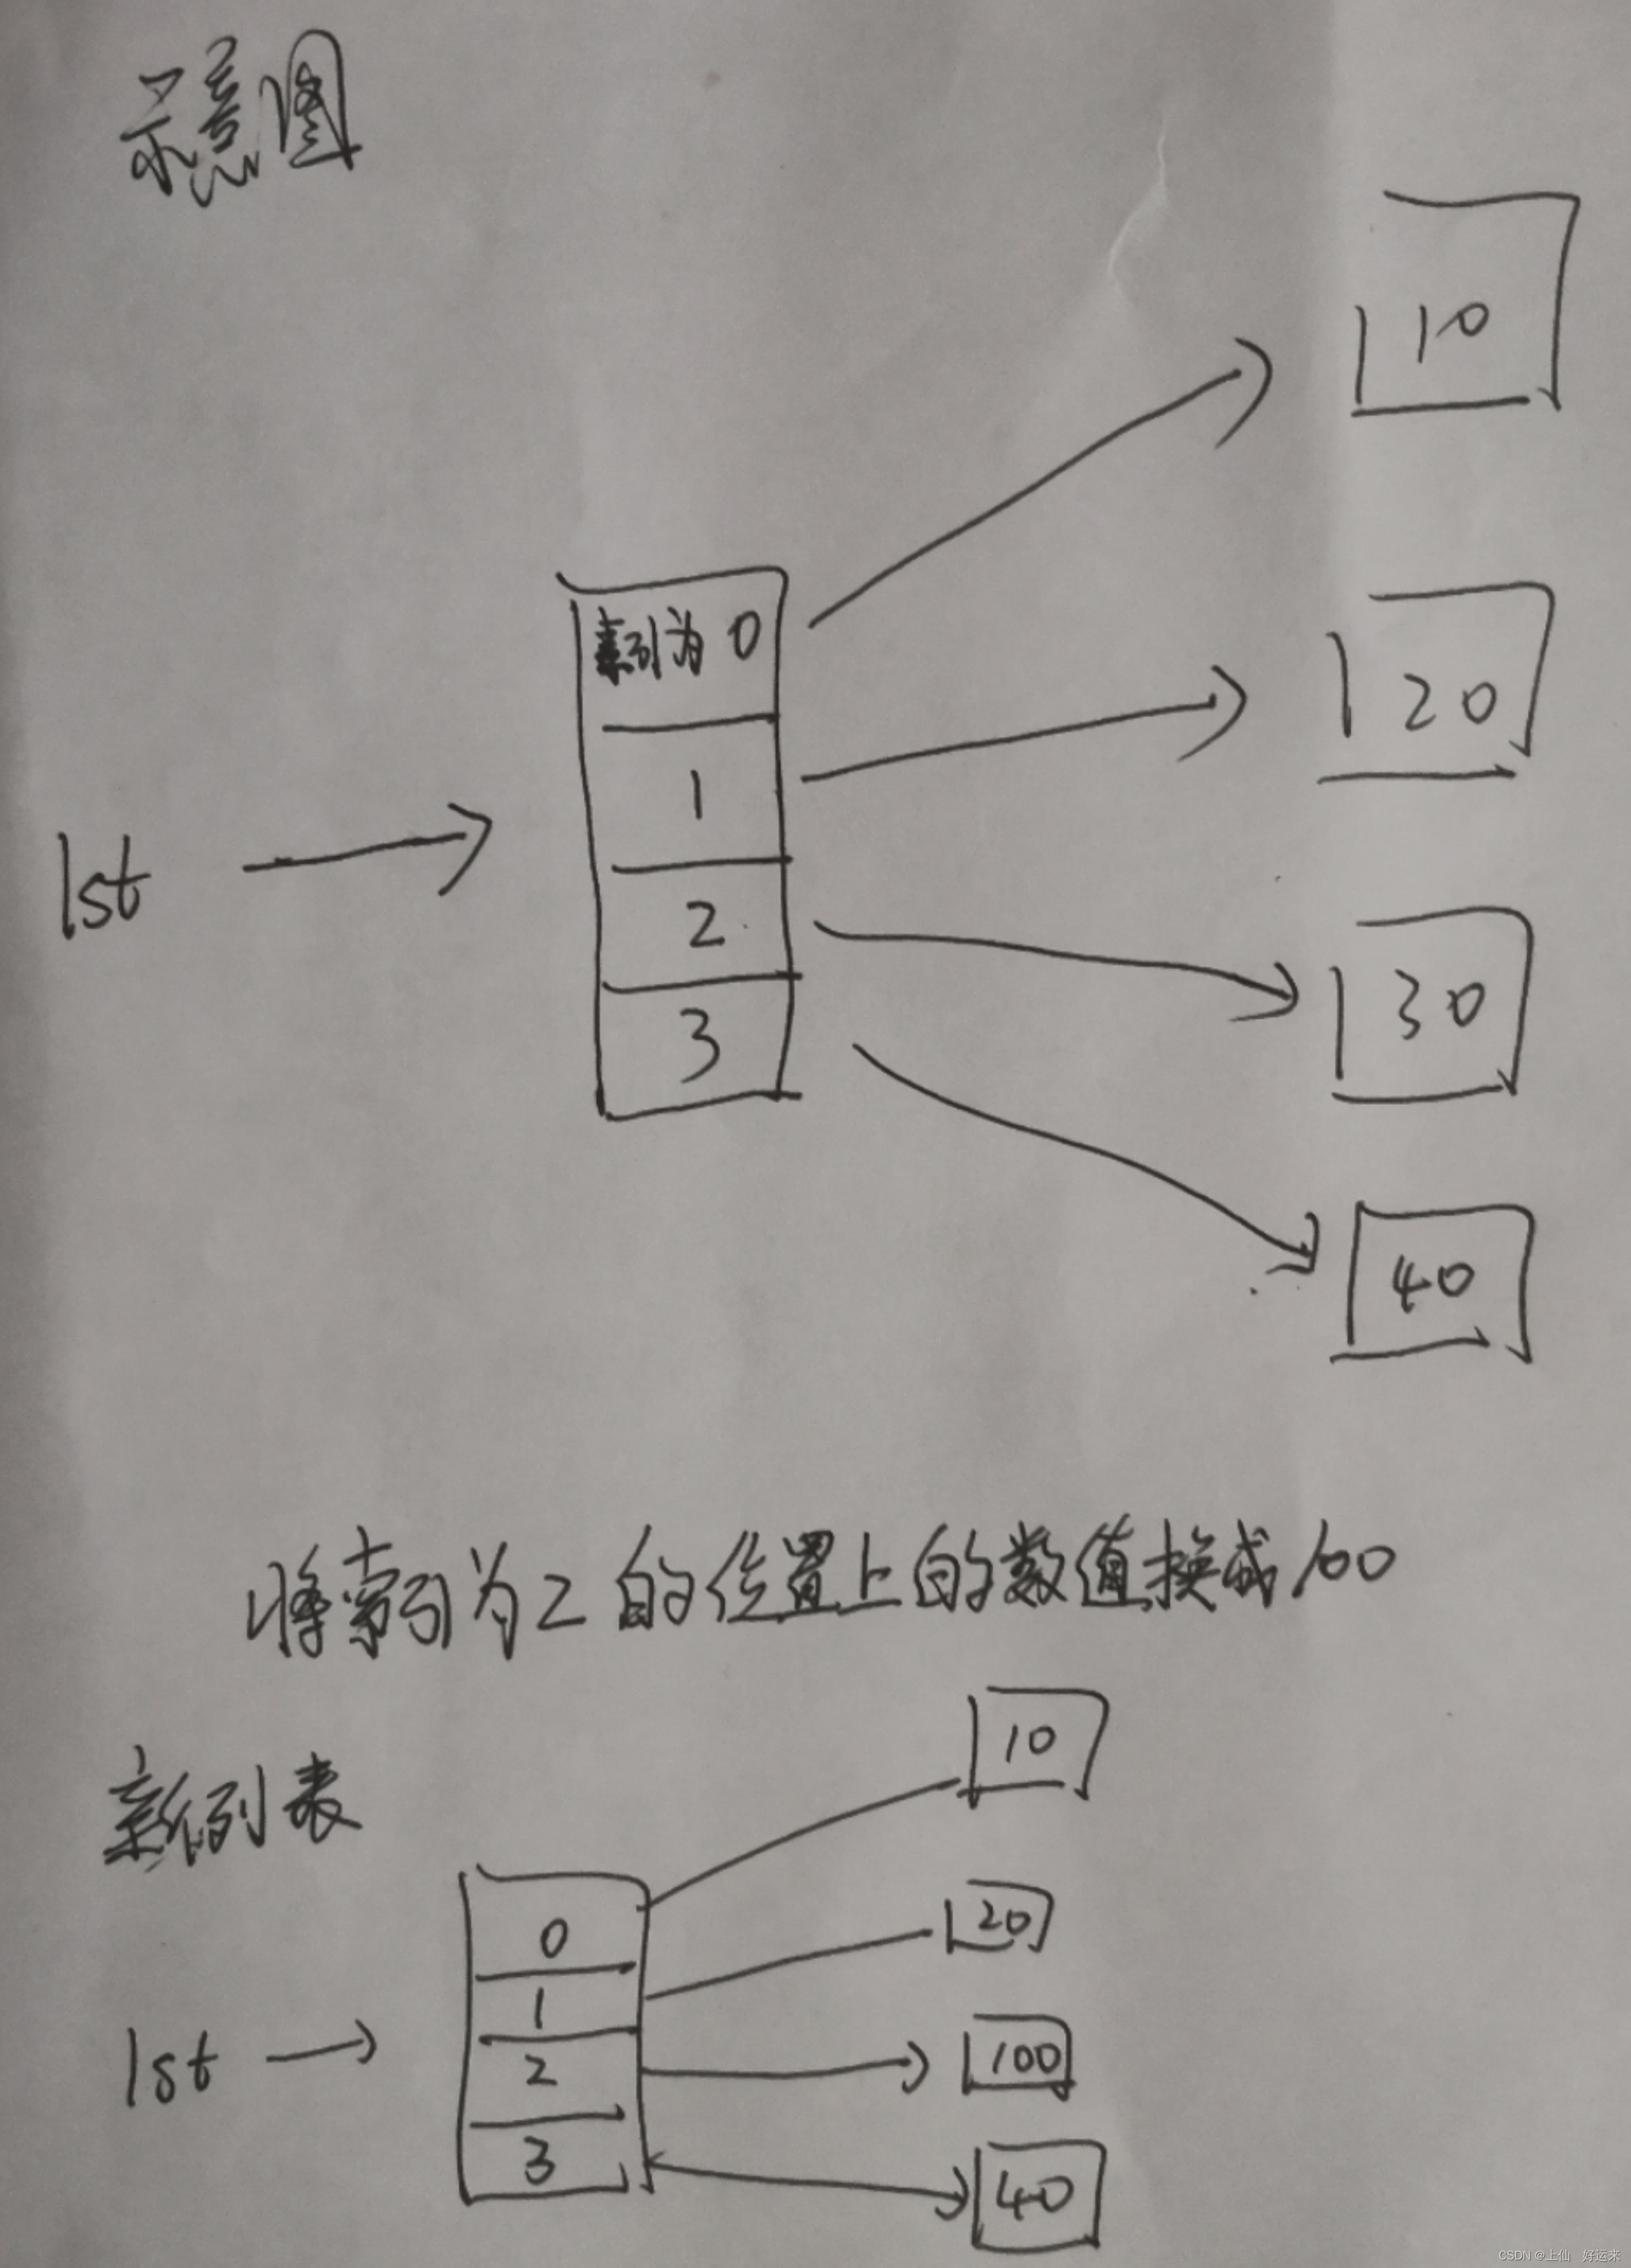 示意图
10
索引为 0
20
1
lst
2
30
3
40
将索引为2的位置上的数值换成100
10
新列表
20
0
1
lst
2
100
3
40
CSDN @上仙 好运来